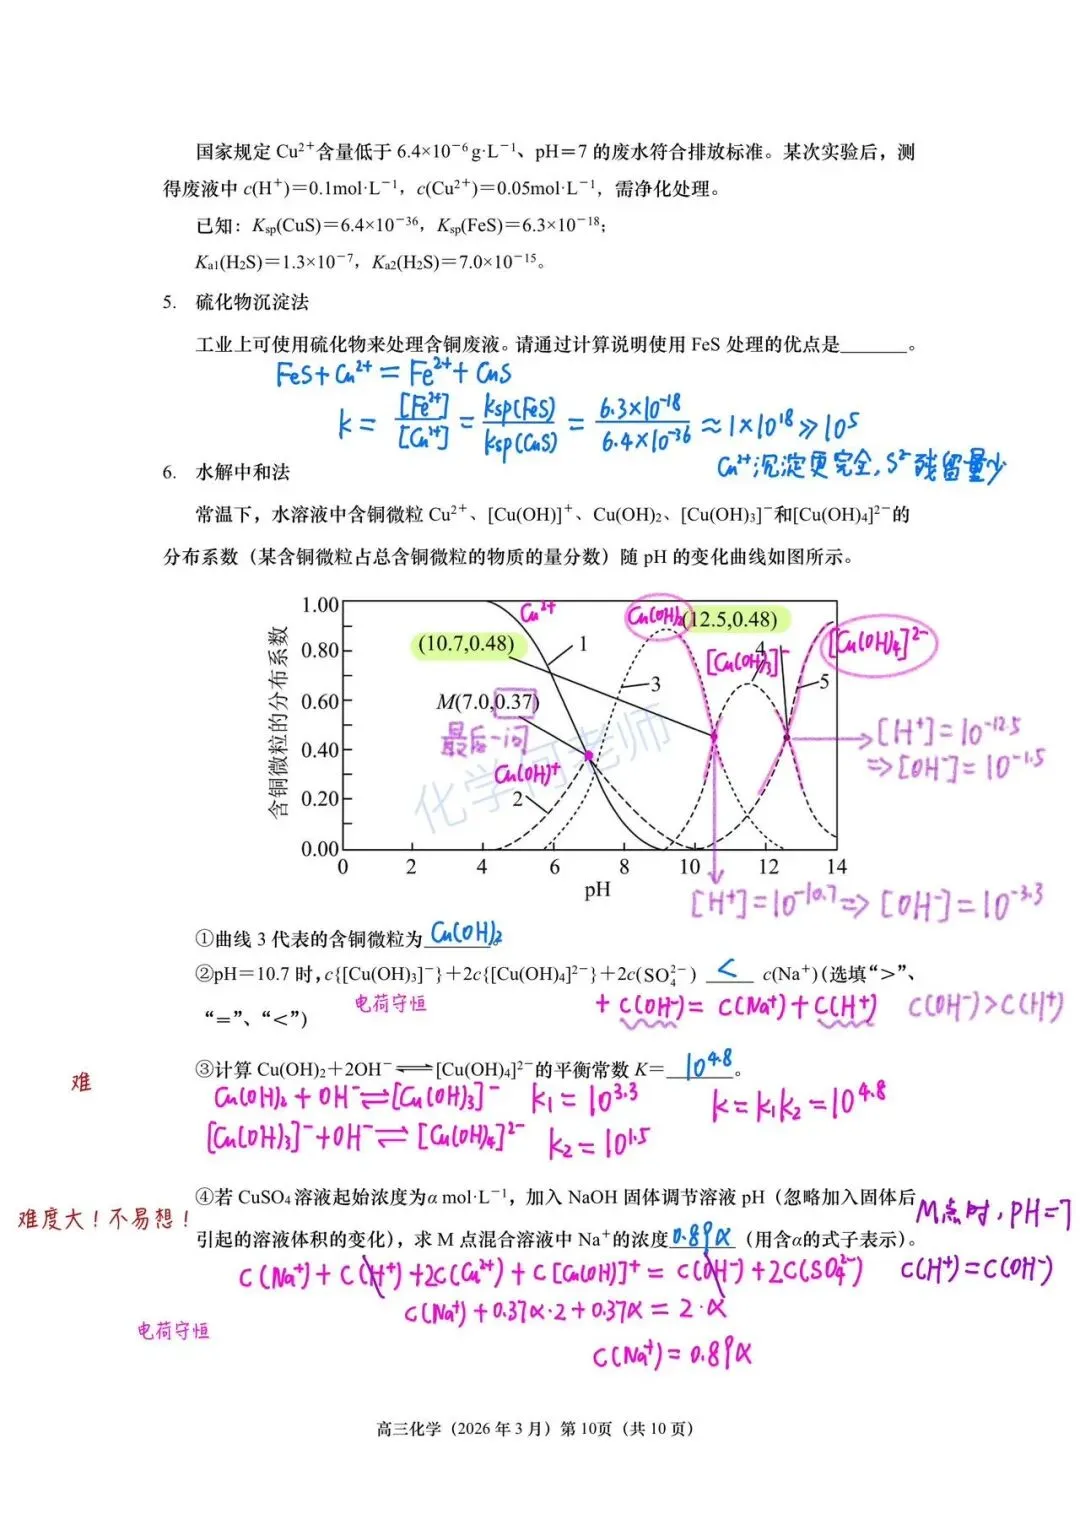 国家规定 Cu²⁺含量低于 6.4×10⁻⁶ g·L⁻¹、pH＝7 的废水符合排放标准。某次实验后，测
得废液中 c(H⁺)＝0.1mol·L⁻¹，c(Cu²⁺)＝0.05mol·L⁻¹，需净化处理。
已知：Ksp(CuS)＝6.4×10⁻³⁶，Ksp(FeS)＝6.3×10⁻¹⁸；
Ka1(H2S)＝1.3×10⁻⁷，Ka2(H2S)＝7.0×10⁻¹⁵。
5. 硫化物沉淀法
工业上可使用硫化物来处理含铜废液。请通过计算说明使用 FeS 处理的优点是______。
FeS+Cu²⁺=Fe²⁺+CuS
k = [Fe²⁺]/[Cu²⁺] = ksp(FeS)/ksp(CuS) = 6.3×10⁻¹⁸/6.4×10⁻³⁶ ≈ 1×10¹⁸ ≫ 10⁵
Cu²⁺沉淀更完全,S²⁻残留量少
6. 水解中和法
常温下，水溶液中含铜微粒 Cu²⁺、[Cu(OH)]⁺、Cu(OH)₂、[Cu(OH)₃]⁻和[Cu(OH)₄]²⁻的
分布系数（某含铜微粒占总含铜微粒的物质的量分数）随 pH 的变化曲线如图所示。
含铜微粒的分布系数
1.00
0.80
0.60
0.40
0.20
0.00
0 2 4 6 8 10 12 14
pH
Cu²⁺
Cu(OH)₂
(12.5,0.48)
(10.7,0.48)
1
[Cu(OH)₃]⁻
4
[Cu(OH)₄]²⁻
3
5
M(7.0,0.37)
最后一问
Cu(OH)⁺
2
化学何老师
[H⁺]=10⁻¹²·⁵
⇒[OH⁻]=10⁻¹·⁵
[H⁺]=10⁻¹⁰·⁷⇒[OH⁻]=10⁻³·³
①曲线 3 代表的含铜微粒为 Cu(OH)₂ 。
②pH＝10.7 时，c{[Cu(OH)₃]⁻}＋2c{[Cu(OH)₄]²⁻}＋2c(SO₄²⁻) < c(Na⁺)（选填“>”、
电荷守恒 + c(OH⁻)= c(Na⁺)+c(H⁺) c(OH⁻)>c(H⁺)
“=”、“<”）
③计算 Cu(OH)₂＋2OH⁻⇌[Cu(OH)₄]²⁻的平衡常数 K＝ 10⁴·⁸ 。
难
Cu(OH)₂+OH⁻⇌[Cu(OH)₃]⁻ k₁=10³·³ k=k₁k₂=10⁴·⁸
[Cu(OH)₃]⁻+OH⁻⇌[Cu(OH)₄]²⁻ k₂=10¹·⁵
④若 CuSO₄ 溶液起始浓度为α mol·L⁻¹，加入 NaOH 固体调节溶液 pH（忽略加入固体后
难度大！不易想！
M点时,pH=7
引起的溶液体积的变化），求 M 点混合溶液中 Na⁺的浓度 0.89α （用含α的式子表示）。
c(Na⁺)+c(H⁺)+2c(Cu²⁺)+c[Cu(OH)]⁺=c(OH⁻)+2c(SO₄²⁻) c(H⁺)=c(OH⁻)
c(Na⁺)+0.37α·2+0.37α=2·α
电荷守恒
c(Na⁺)=0.89α
高三化学（2026 年 3 月）第 10页（共 10 页）